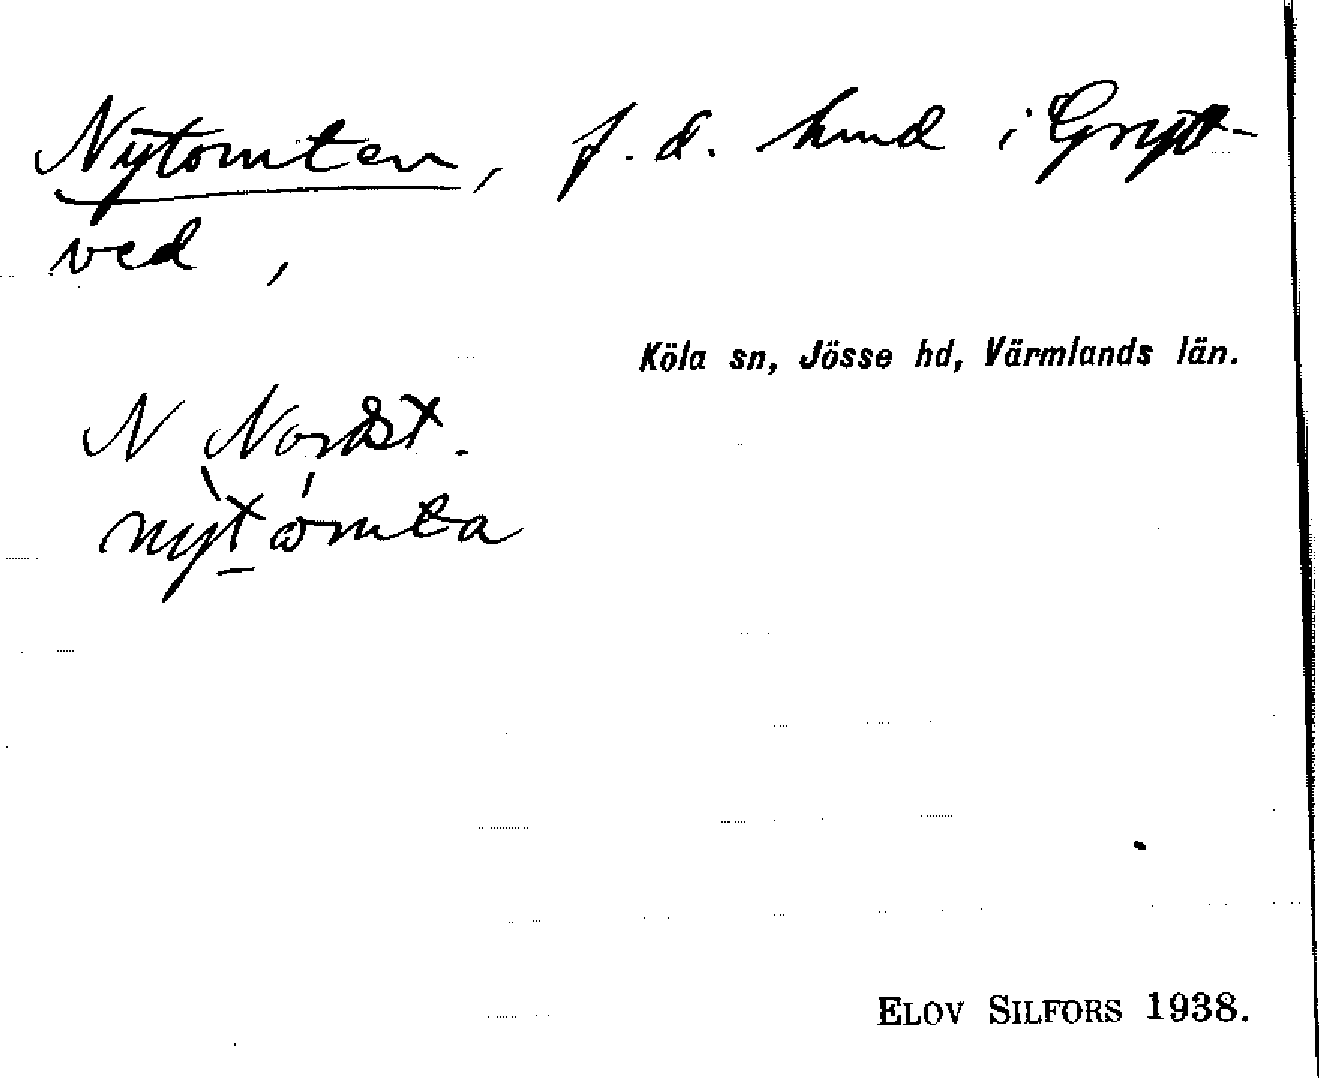 Nytomten, f.d. hmd i Grypt-
ved,
Köla sn, Jösse hd, Värmlands län.
N Nordst.
nytomta
ELOV SILFORS 1938.